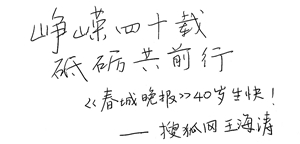 峥嵘四十载
砥砺共前行
《春城晚报》40岁生快！
——搜狐网王海涛